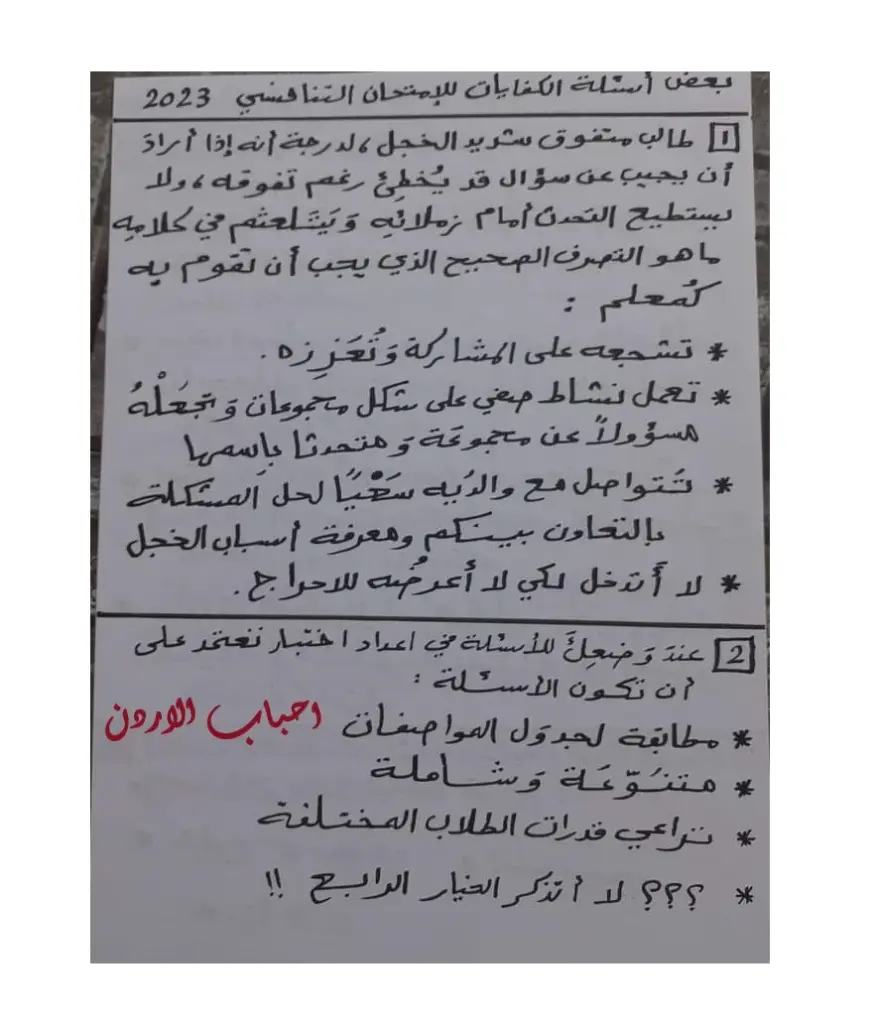 بعض أسئلة الكفايات للإمتحان التنافسي 2023
1 طالب متفوق شديد الخجل، لدرجة أنه إذا أرادَ
أن يجيب عن سؤال قد يُخطِئ رغم تفوقه، ولا
يستطيع التحدث أمام زملائهِ وَيَتَلعثم في كلامهِ
ما هو التصرف الصحيح الذي يجب أن تقوم به
كمُعلم :
* تشجعه على المشاركة وَتُعَزِزه.
* تعمل نشاط صفي على شكل مجموعات وَتجعَلْهُ
مسؤولاً عن مجموعَة وَ متحدثا بإسمها
* تَتواصل مع والدَيه سَعْيًا لحل المشكلة
بالتعاون بينكم ومعرفة أسباب الخجل
* لا أَتدخل لكي لا أعرضُه للاحراج.
2 عندَ وَضعِكَ للأسئلة في اعداد اختبار تعتمد على
أن تكون الأسئلة :
* مطابقة لجدوَل المواصفات احباب الاردن
* متنَوّعَة وَشاملة
* تراعي قدرات الطلاب المختلفة
* ؟؟؟ لا أتذكر الخيار الرابع !!